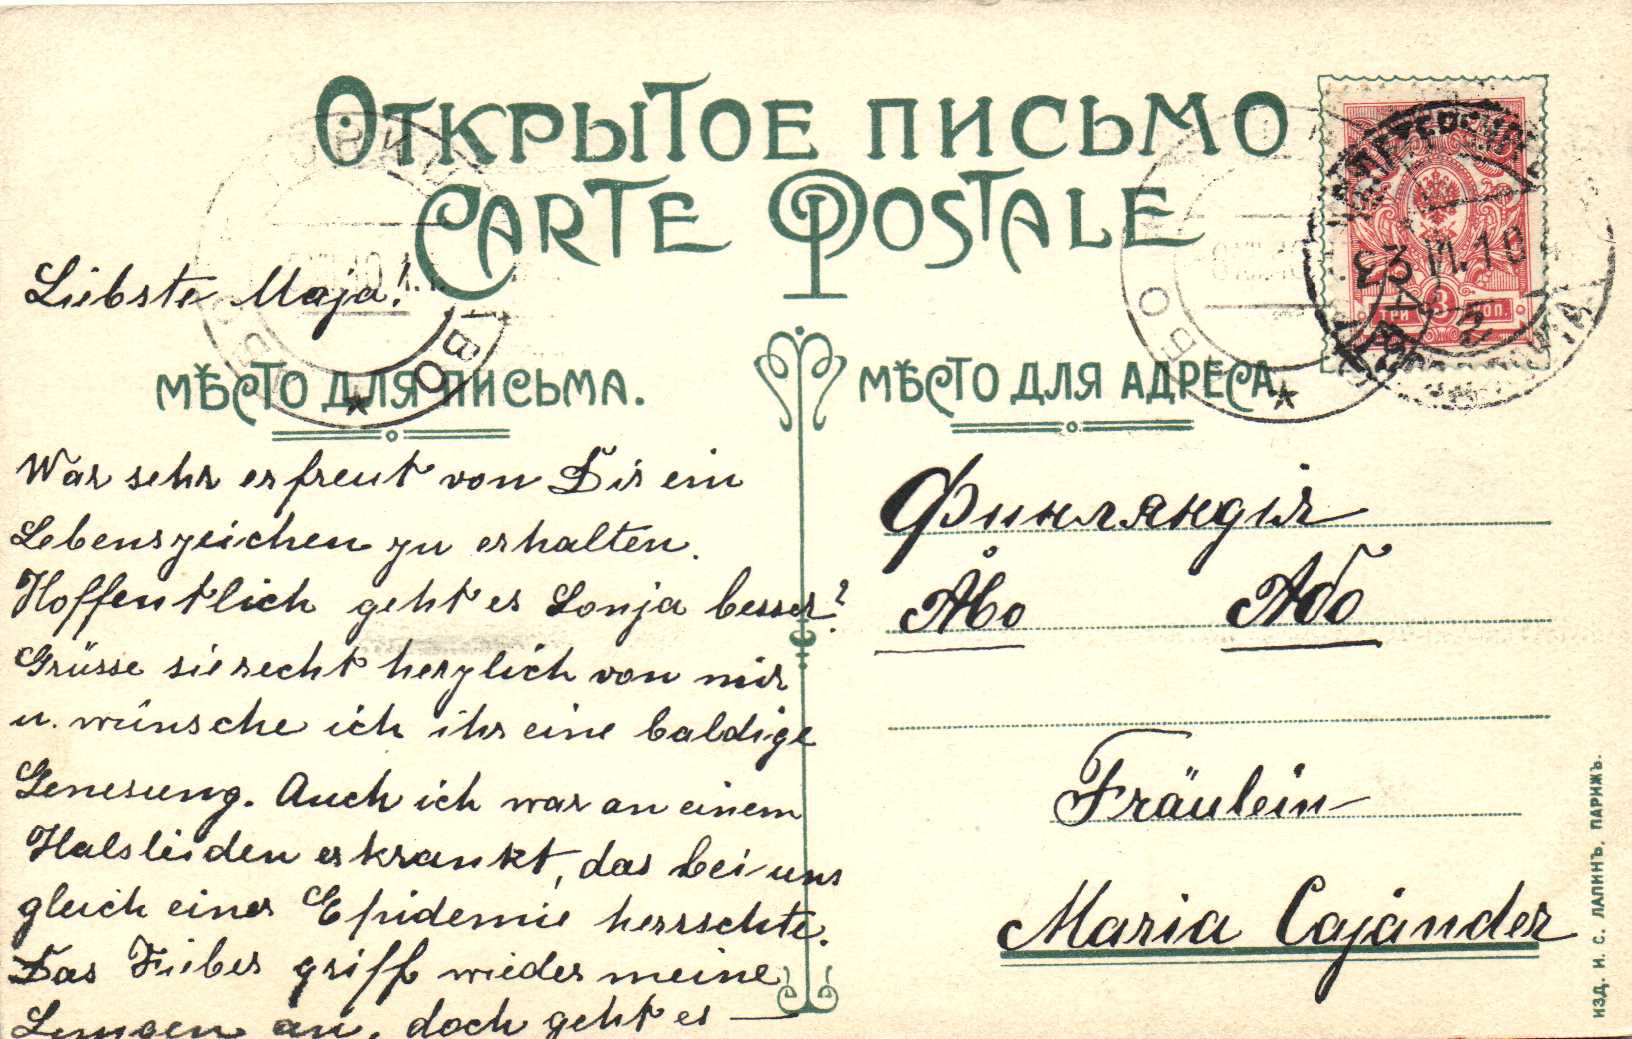 Открытое письмо
Carte Postale
Liebste Maja!
Мѣсто для письма.
War sehr erfreut von Dir ein
Lebenszeichen zu erhalten.
Hoffentlich geht es Sonja besser?
Grüsse sie recht herzlich von mir
u. wünsche ich ihr eine baldige
Genesung. Auch ich war an einem
Halsleiden erkrankt, das bei uns
gleich einer Epidemie herrschte.
Das Fieber griff wieder meine
Lungen an, doch geht es —
Мѣсто для адреса.
Финляндія
Åbo Або
Fräulein
Maria Cajander
ТРИ 3 КОП.
23 VI.10
ИЗД. И. С. ЛАПИНЪ. ПАРИЖЪ.